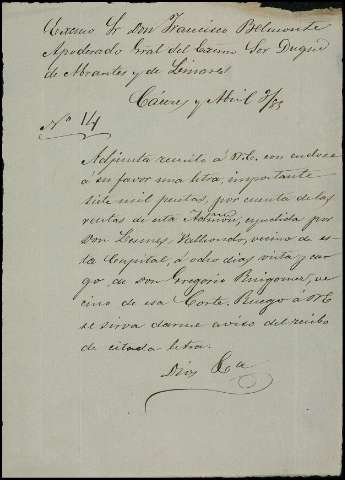 Excmo Sr Don Francisco Belmonte
Apoderado Gral del Excmo Sor Duque
de Abrantes y de Linares
Cáceres y Abril 3/83
Nº 14
Adjunta remito á V.E. con endoso
á su favor una letra, importante
siete mil pesetas, por cuenta de las
rentas de esta Admon, espedida por
Don Vallhondo, vecino de es
ta Capital, á ocho dias vista y car
go, de Don Gregorio ve
cino de esa Corte. Ruego á VE
se sirva darme aviso del recibo
de citada letra.
Dios &a